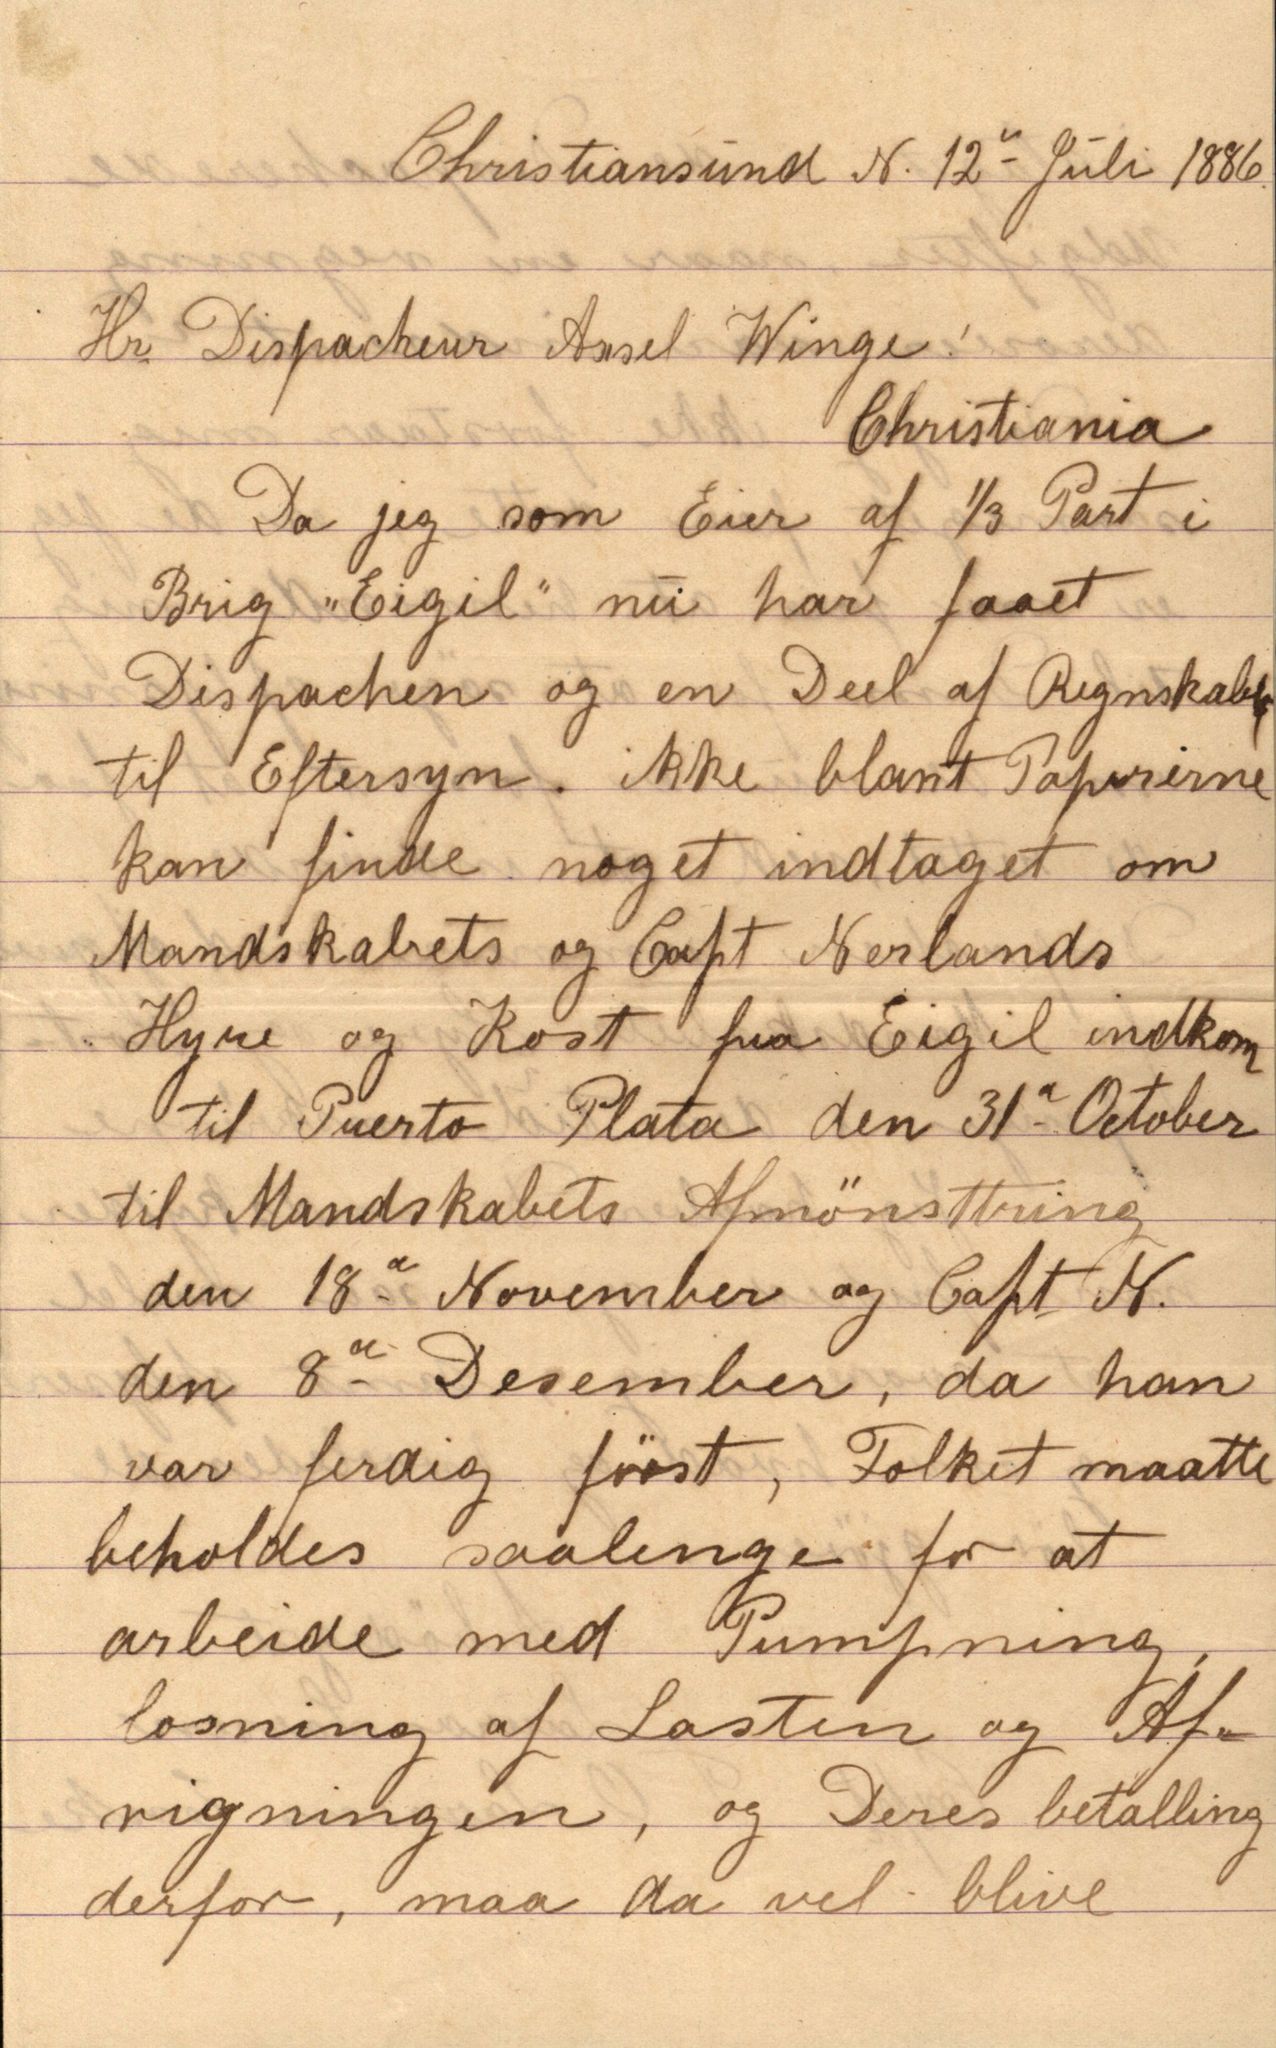 Christiansund N. 12te Juli 1886.
Hr. Dispacheur Axsel Winge!
Christiania
Da jeg som Eier af 1/3 Part i
Brig "Eigil" nu har faaet
Dispachen og en Deel af Regnskabet
til Eftersyn. ikke blant Papirerne
kan finde noget indtaget om
Mandskabets og Capt Nerlands
Hyre og Kost fra Eigil indkom
til Puerto Plata den 31te October
til Mandskabets Afmönsttring
den 18de November og Capt N.
den 8de Desember, da han
var ferdig först, Folket maatte
beholdes saalenge for at
arbeide med Pumpning,
losning af Lasten og Af-
rigningen, og Deres betalling
derfor, maa da vel blive